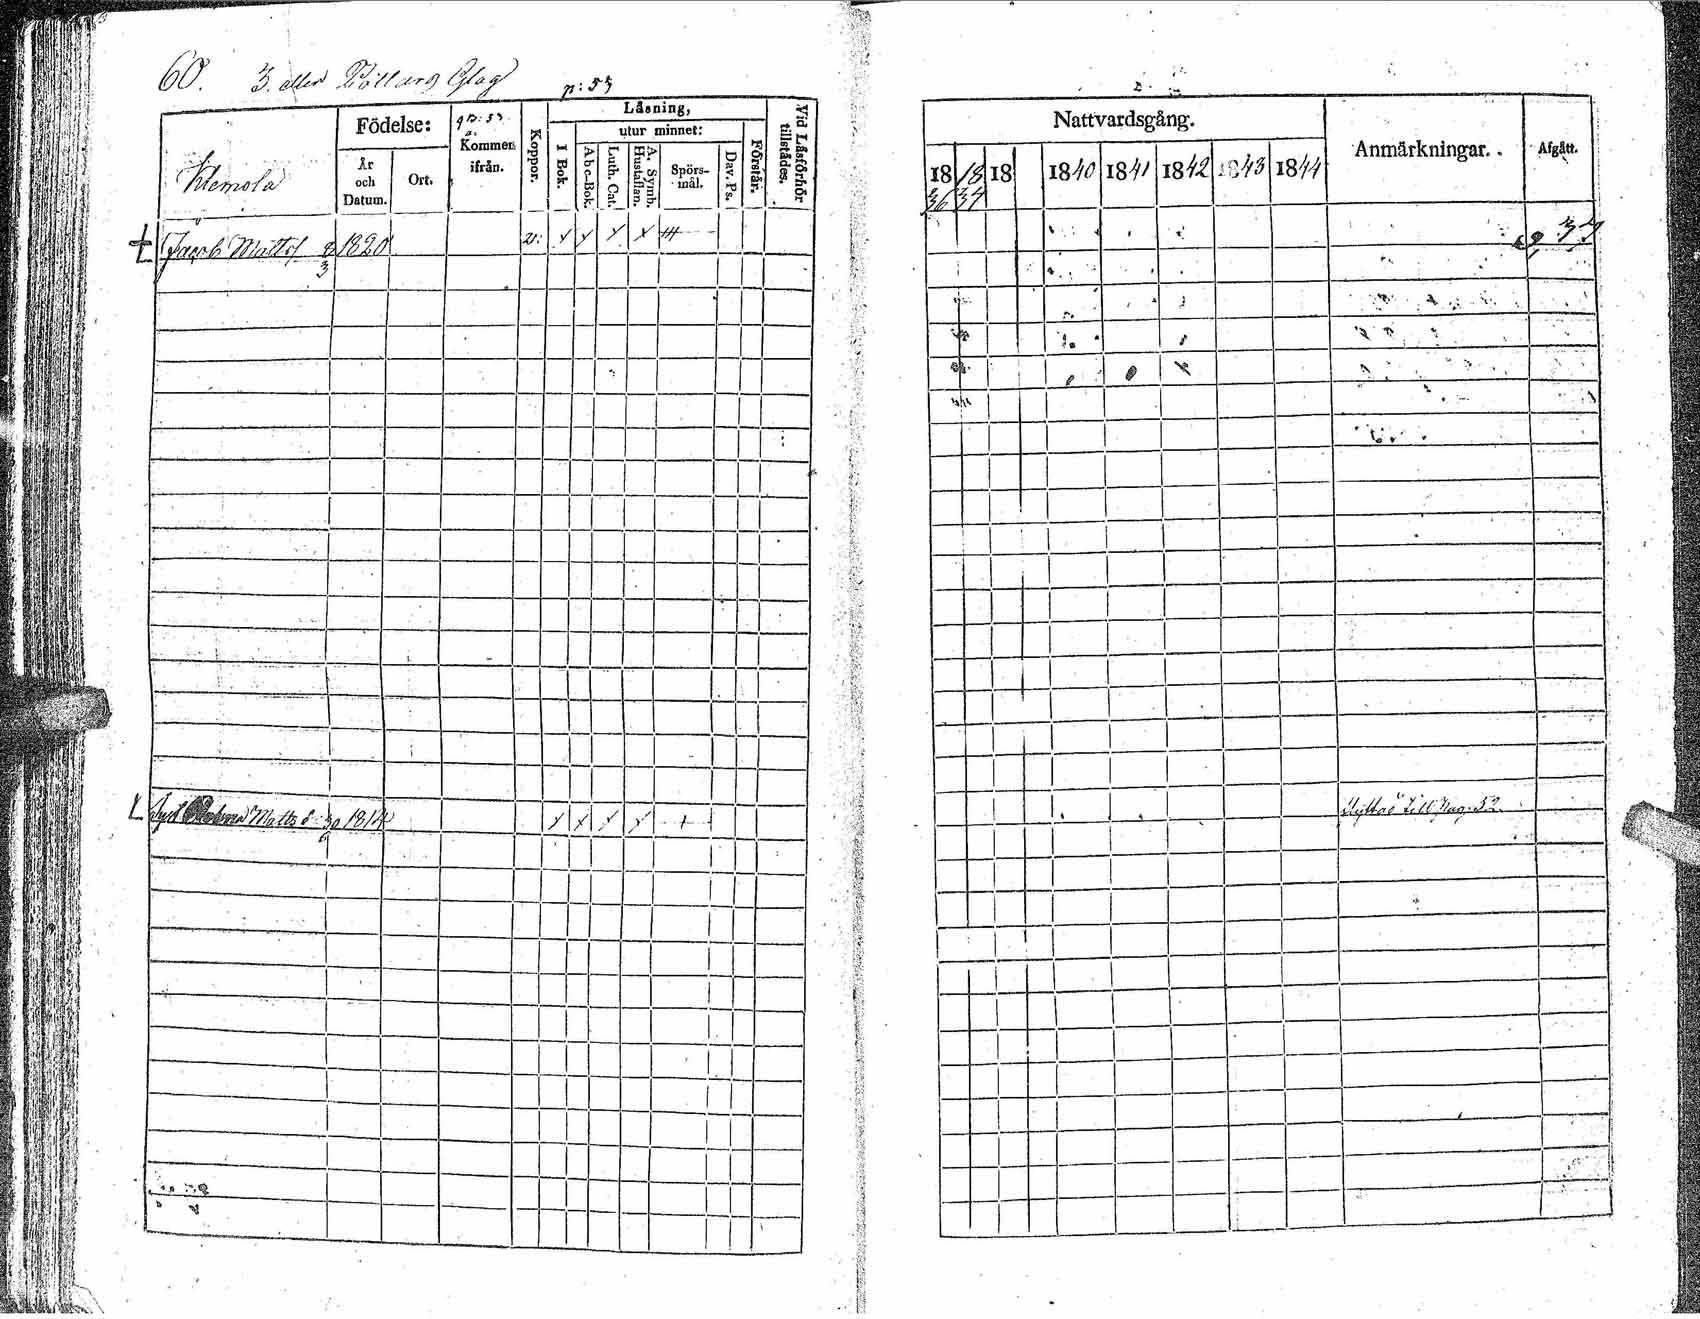 60. 3. eller Pöllars Glag
p: 53
Födelse:
År och Datum.
Ort.
Kommen ifrån.
Koppor.
Läsning,
I Bok.
utur minnet:
Abc-Bok.
Luth. Cat.
A. Symb. Hustaflan.
Spörs-mål.
Dav. Ps.
Förstår.
Vid Läsförhör tillstädes.
Klemola
Jacob Matts 8/3 1820 v:
Matts d. 30/6 1814
Nattvardsgång.
Anmärkningar.
Afgått.
18 36 18 37 18 1840 1841 1842 1843 1844
37
Flyttad till Pag. 52